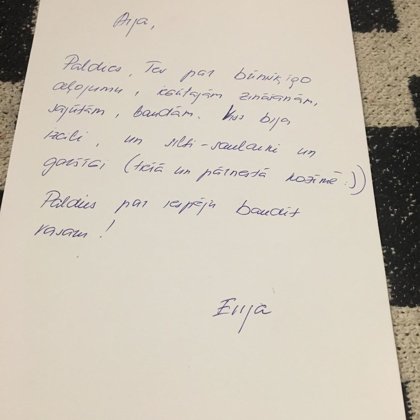 Aija,
Paldies, Tev par burvīgo
ceļojumu, kolītajām zināšanām,
sajūtām, baudām. Viss bija
izcili, un silti-saulaini un
garšīgi (tiešā un pārnestā nozīmē :))
Paldies par iespēju baudīt
vasaru!
Evija